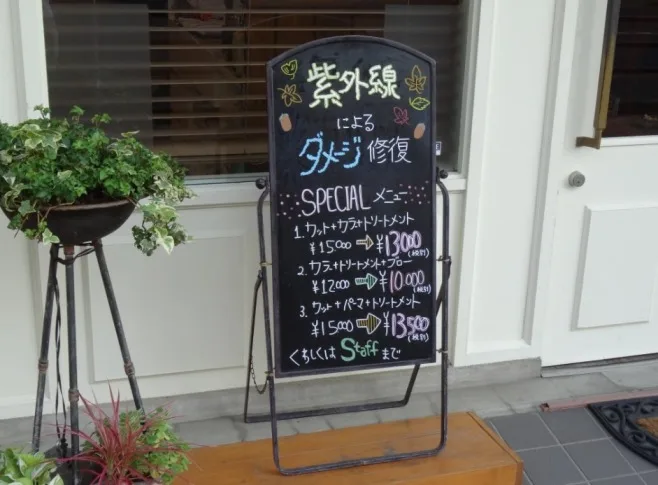 紫外線
による
ダメージ修復
SPECIAL メニュー
1. カット+カラー+トリートメント
¥15000 → ¥13000 (税別)
2. カラー+トリートメント+ブロー
¥12000 → ¥10.000 (税別)
3. カット+パーマ+トリートメント
¥15000 → ¥13,500 (税別)
くわしくは Staff まで